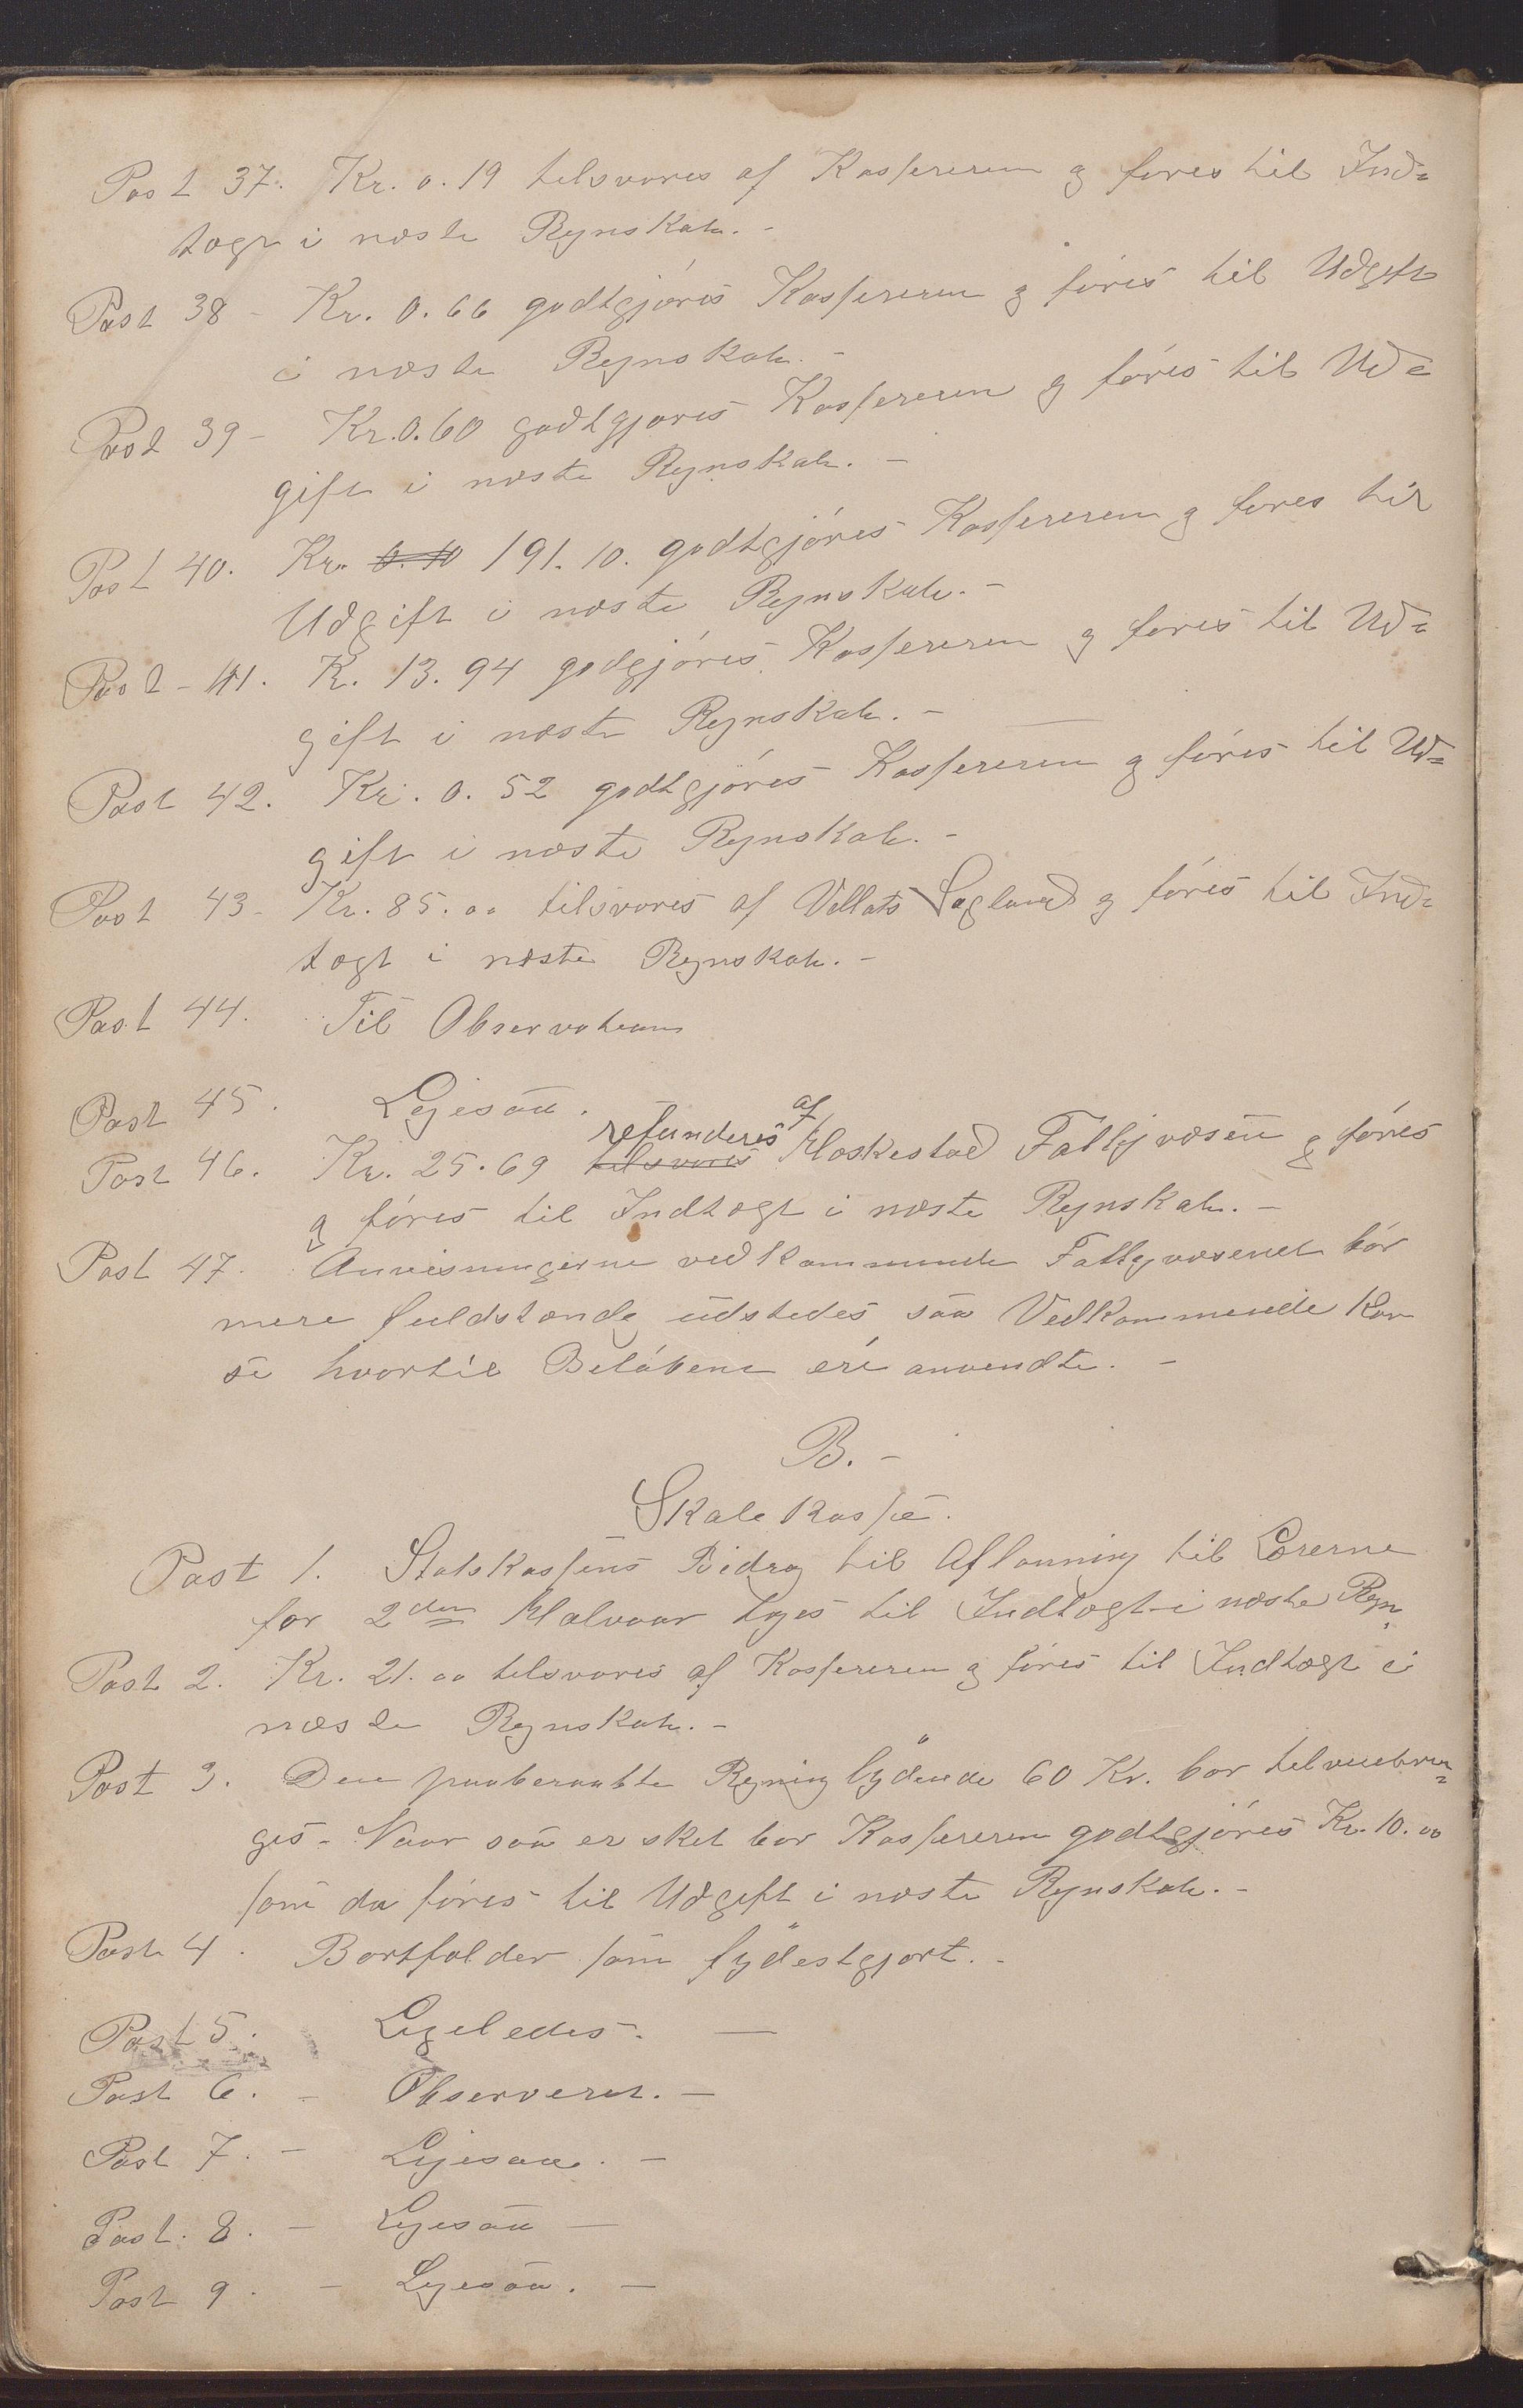 Post 37. Kr. 0.19 tilsvares af Kassereren og føres til Ind=
tægt i næste Regnskab. -
Post 38 - Kr. 0.66 godtgjøres Kassereren og føres til Udgift
i næste Regnskab. -
Post 39 - Kr. 0.60 godtgjøres Kassereren og føres til Ud=
gift i næste Regnskab. -
Post 40. Kr. 0.10 191.10. godtgjøres Kassereren og føres til
Udgift i næste Regnskab. -
Post - 41. K. 13.94 godgjøres Kassereren og føres til Ud=
gift i næste Regnskab. -
Post 42. Kr. 0.52 godtgjøres Kassereren og føres til Ud=
gift i næste Regnskab. -
Post 43 - Kr. 85.00 tilsvares af Sagland og føres til Ind=
tægt i næste Regnskab. -
Post 44. Til Observation
Post 45. Ligesaa.
Post 46. Kr. 25.69 tilsvares refunderes af Haskestad Fattigvæsen og føres
og føres til Indtægt i næste Regnskab. -
Post 47. Anvisningerne vedkommende Fattigvæsenet bør
mere fuldstændig udstedes saa Vedkommende kan
se hvortil Beløbene ere anvendte. -
B. -
Skolekasse.
Post 1. Statskassens Bidrag til Aflønning til Lærerne
for 2den Halvaar tages til Indtægt i næste Regn.
Post 2. Kr. 21.00 tilsvares af Kassereren og føres til Indtægt i
næste Regnskab. -
Post 3. Den paaberaabte Regning lydende 60 Kr. bør tilveiebrin=
ges - Naar saa er sket bør Kassereren godtgjøres Kr. 10.00
som da føres til Udgift i næste Regnskab. -
Post 4. Bortfalder som fyldestgjort. -
Post 5. Ligeledes. -
Post 6. - Observeres. -
Post 7. - Ligesaa. -
Post. 8. - Ligesaa -
Post 9. - Ligesaa. -